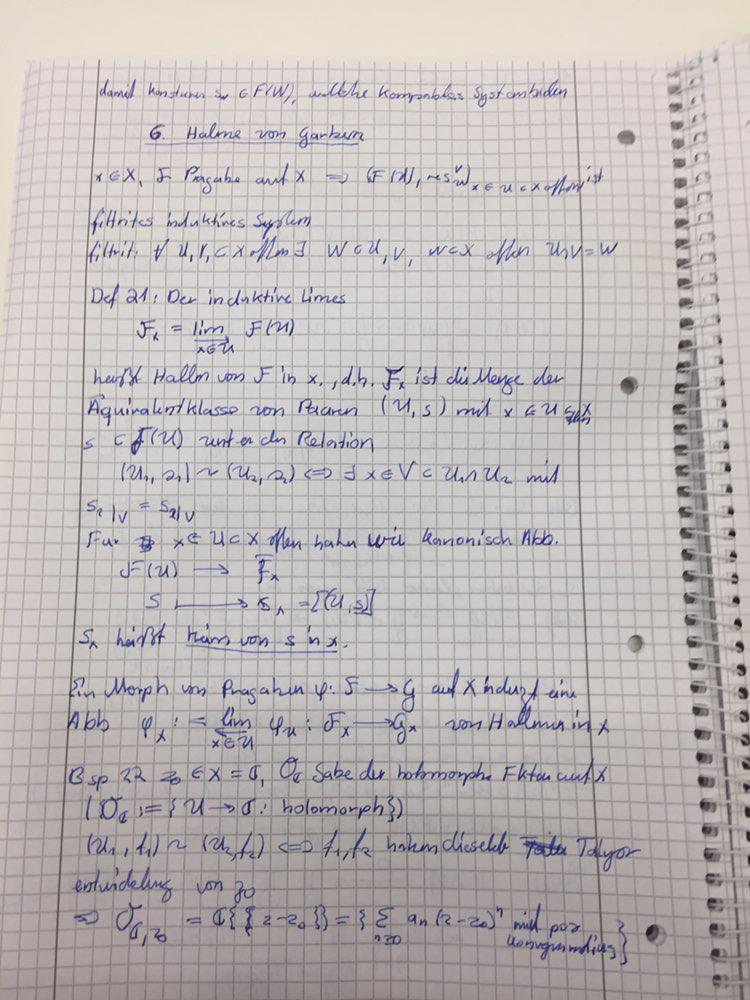 damit konstruren s_W ∈ F(W), welche Kompatibles System bilden
6. Halme von Garben
x ∈ X, F Pragabe auf X ⟹ (F(U), res^V_U)_{x ∈ U ⊂ X offen} ist
filtrites induktives System
filtrit: ∀ U, V, ⊂ X offen ∃ W ⊂ U, V, W ⊂ X offen U∩V = W
Def 21: Der induktive Limes
F_x = lim_{x∈U} F(U)
heißt Hallm von F in x., d.h. F_x ist die Menge der
Äquivalentklasse von Paaren (U, s) mit x ∈ U ⊂ X offen
s ⊂ F(U) unter der Relation
(U_1, s_1) ~ (U_2, s_2) ⟺ ∃ x ∈ V ⊂ U_1 ∩ U_2 mit
s_1|V = s_2|V
Fur x ∈ U ⊂ X offen haben wir kanonisch Abb.
F(U) ⟶ F_x
s ⟼ s_x = [(U, s)]
s_x heißt Keim von s in x.
Ein Morph von Pragaben φ: F ⟶ G auf X induzt eine
Abb φ_x := lim_{x∈U} φ_U : F_x ⟶ G_x von Hallmen in x
Bsp 22 z_0 ∈ X = ℂ, O_ℂ Gabe der holomorphe Fkten auf X
(O_ℂ := {U → ℂ: holomorph})
(U_1, f_1) ~ (U_2, f_2) ⟺ f_1, f_2 haben dieselbe Talyor
entwicklung von z_0
⟹ O_{ℂ,z_0} = ℂ{{z-z_0}} = {∑_{n≥0} an (z-z_0)^n mit pos
konvergenzradius}